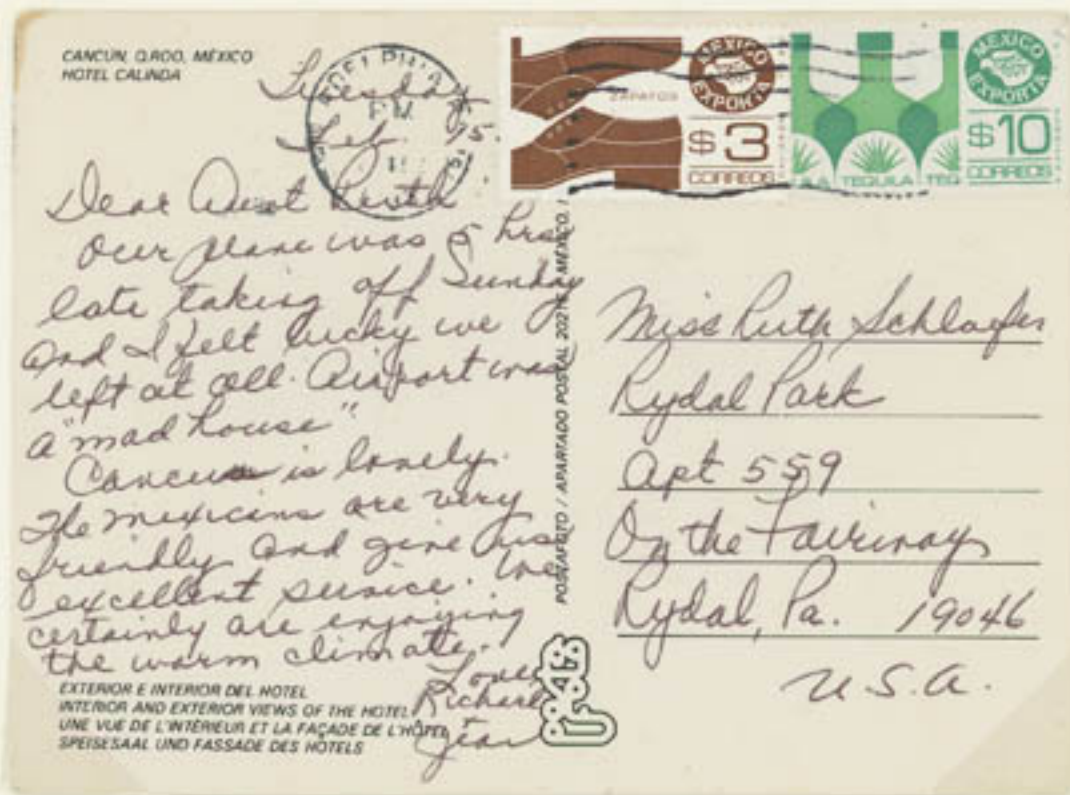 CANCÚN, Q.ROO, MÉXICO
HOTEL CALINDA
Tuesday
Feb. 15.
Dear Aunt Ruth
Our plane was 5 hrs.
late taking off Sunday
and I felt lucky we
left at all. Airport was
a "mad house"
Cancun is lovely.
The Mexicans are very
friendly and give us
excellent service. We
certainly are enjoying
the warm climate.
Love,
Richard
Jean
EXTERIOR E INTERIOR DEL HOTEL
INTERIOR AND EXTERIOR VIEWS OF THE HOTEL
UNE VUE DE L'INTÉRIEUR ET LA FAÇADE DE L'HÔTEL
SPEISESAAL UND FASSADE DES HOTELS
POSTAFOTO / APARTADO POSTAL MÉXICO, 
PM
ZAPATOS
MEXICO
EXPORTA
$3
CORREOS
MEXICO
EXPORTA
$10
CORREOS
TEQUILA TEQ
Miss Ruth Schlaefer
Rydal Park
Apt 559
On the Fairway
Rydal, Pa. 19046
U.S.A.